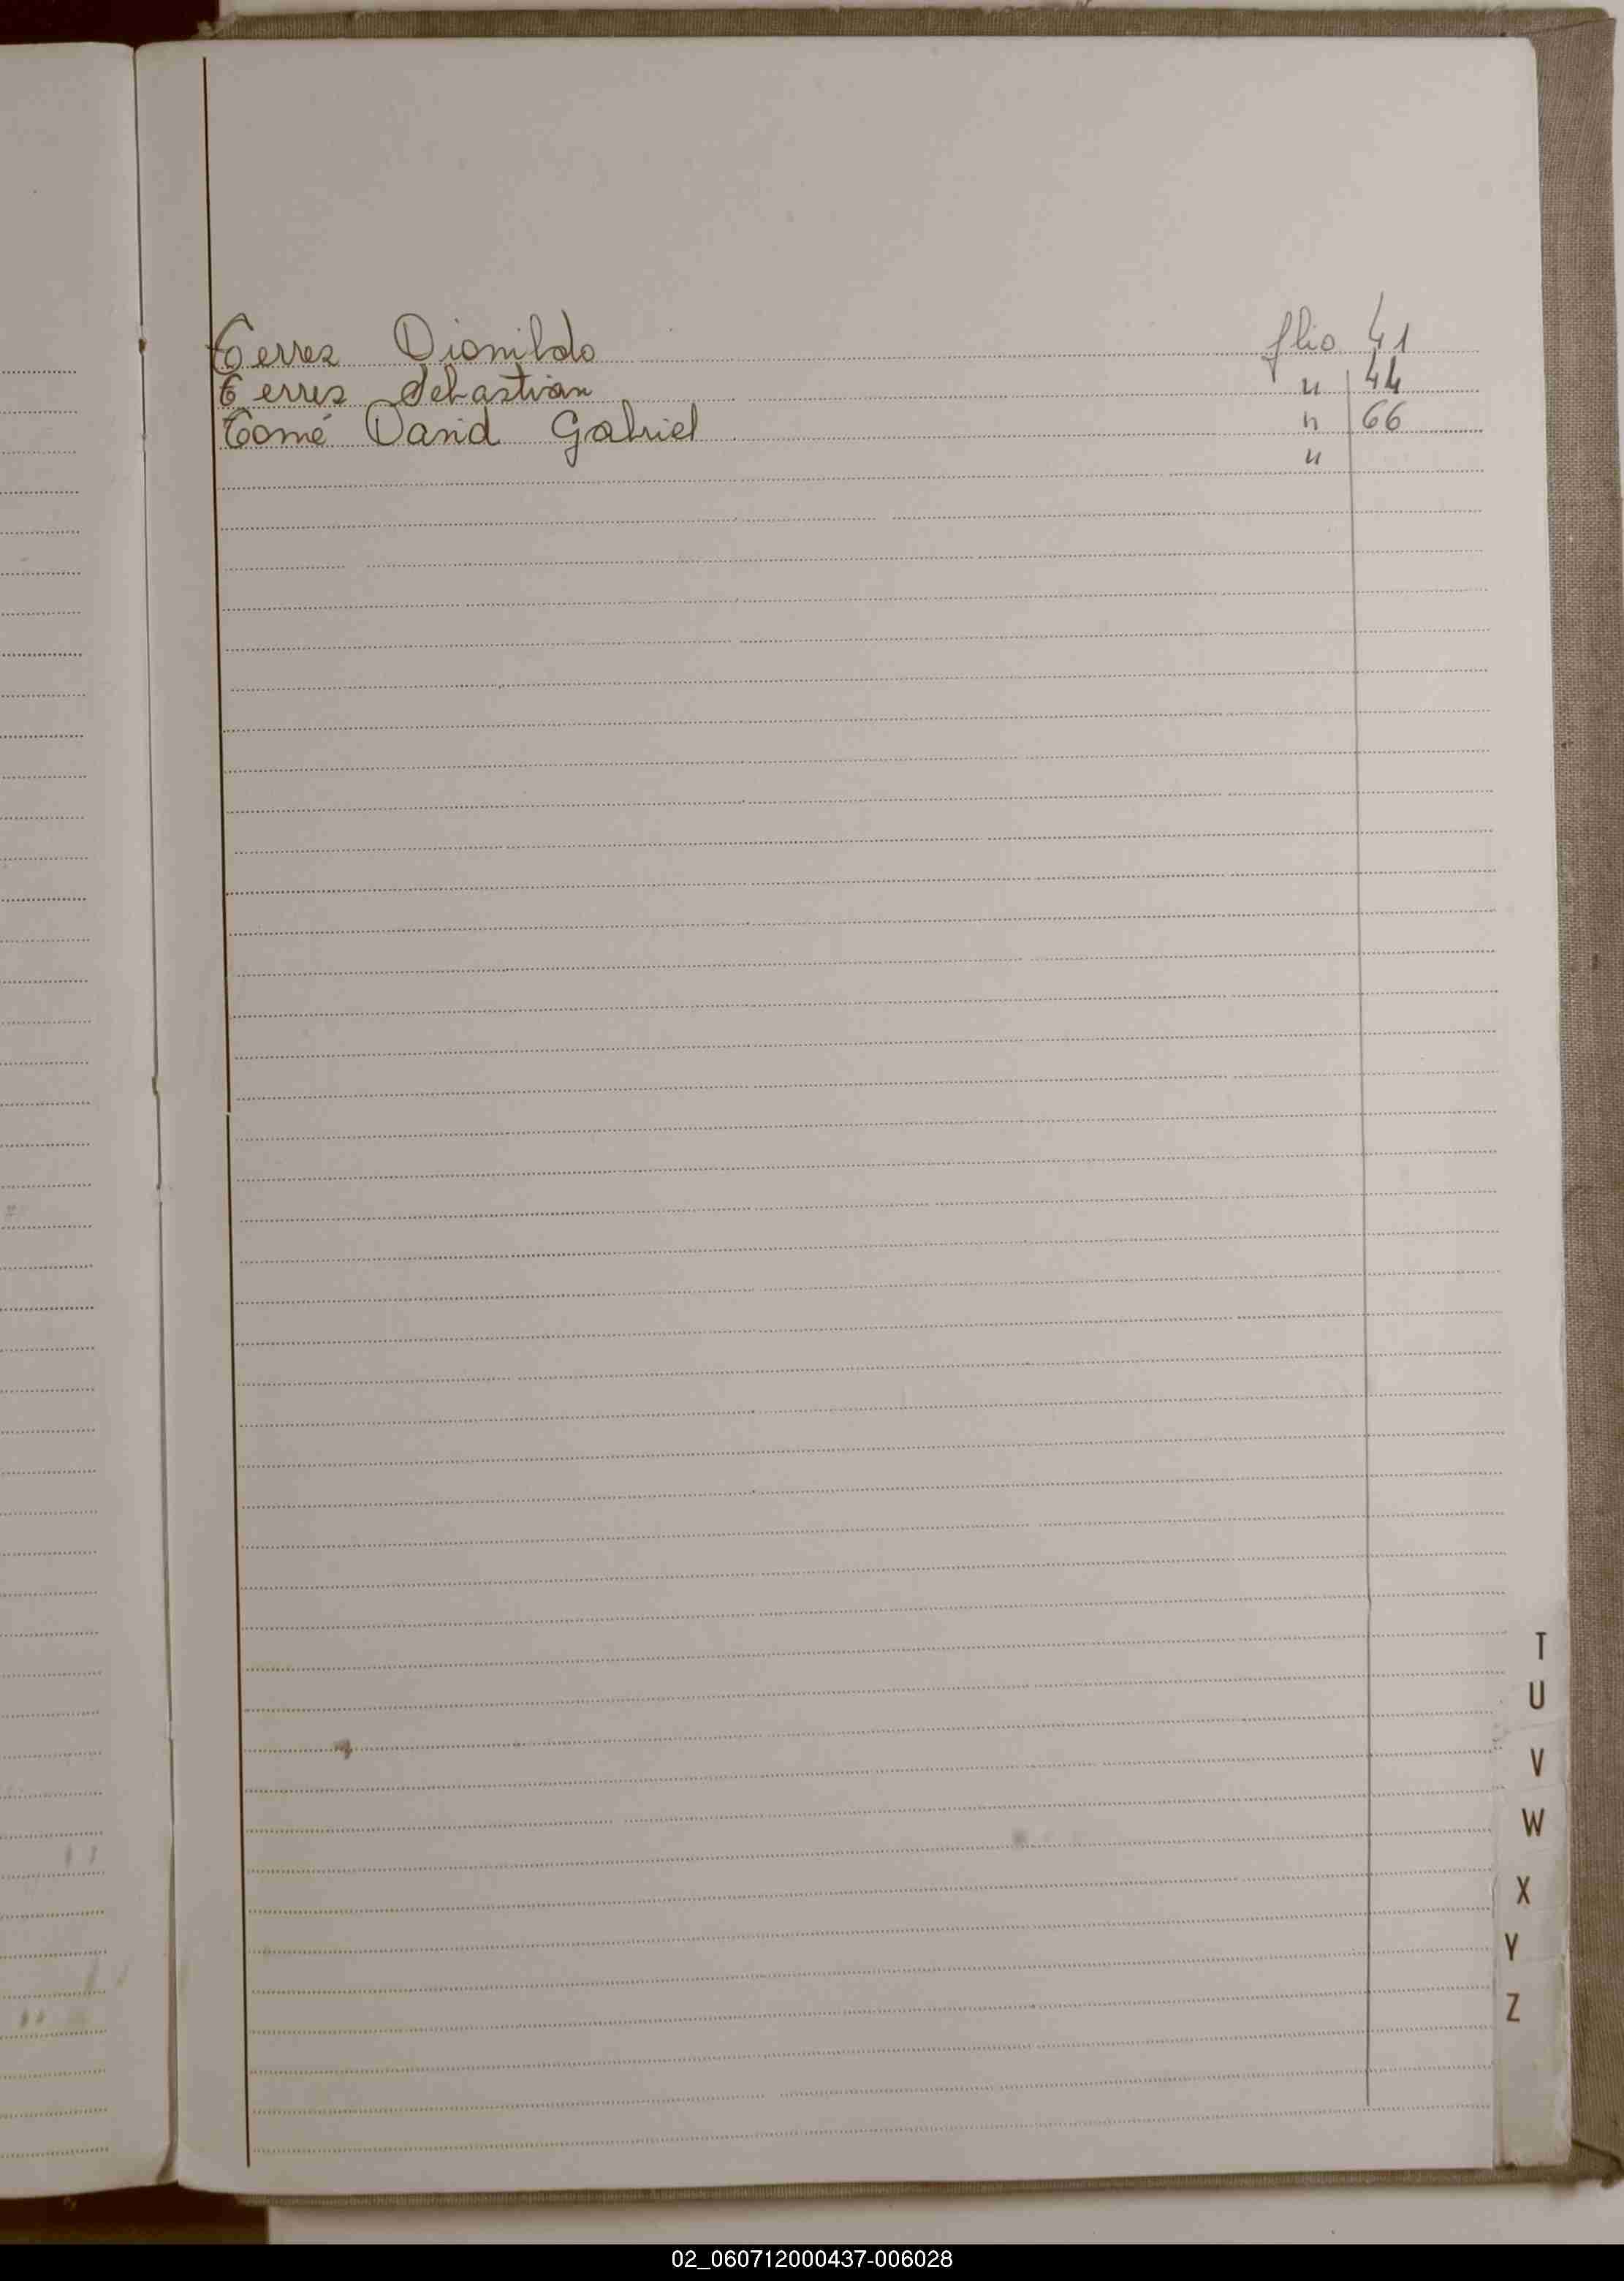 Terres Dionildo flio 41
Terres Sebastian " 44
Tomé David Gabriel " 66
"
T
U
V
W
X
Y
Z
02_060712000437-006028